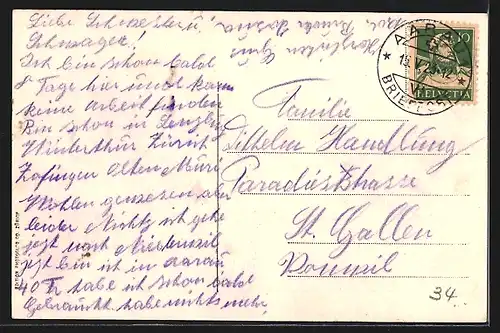 Liebe Schwester u.
Schwager!
Ich bin schon bald
8 Tage hier und kann
keine Arbeit finden
Bin schon in
Winterthur Zürich
Zofingen Olten Muri
Wohlen gewesen aber
leider Nichts ich gehe
jezt nach
jezt bin ich in Aarau
40 Fr habe ich schon bald
Gebraucht habe nichts mehr
Herzlichen Gruss
Bruder
AARAU
BRIEF
10
HELVETIA
Familie
Wilhelm Handlung
Paradisstrasse
St. Gallen
34